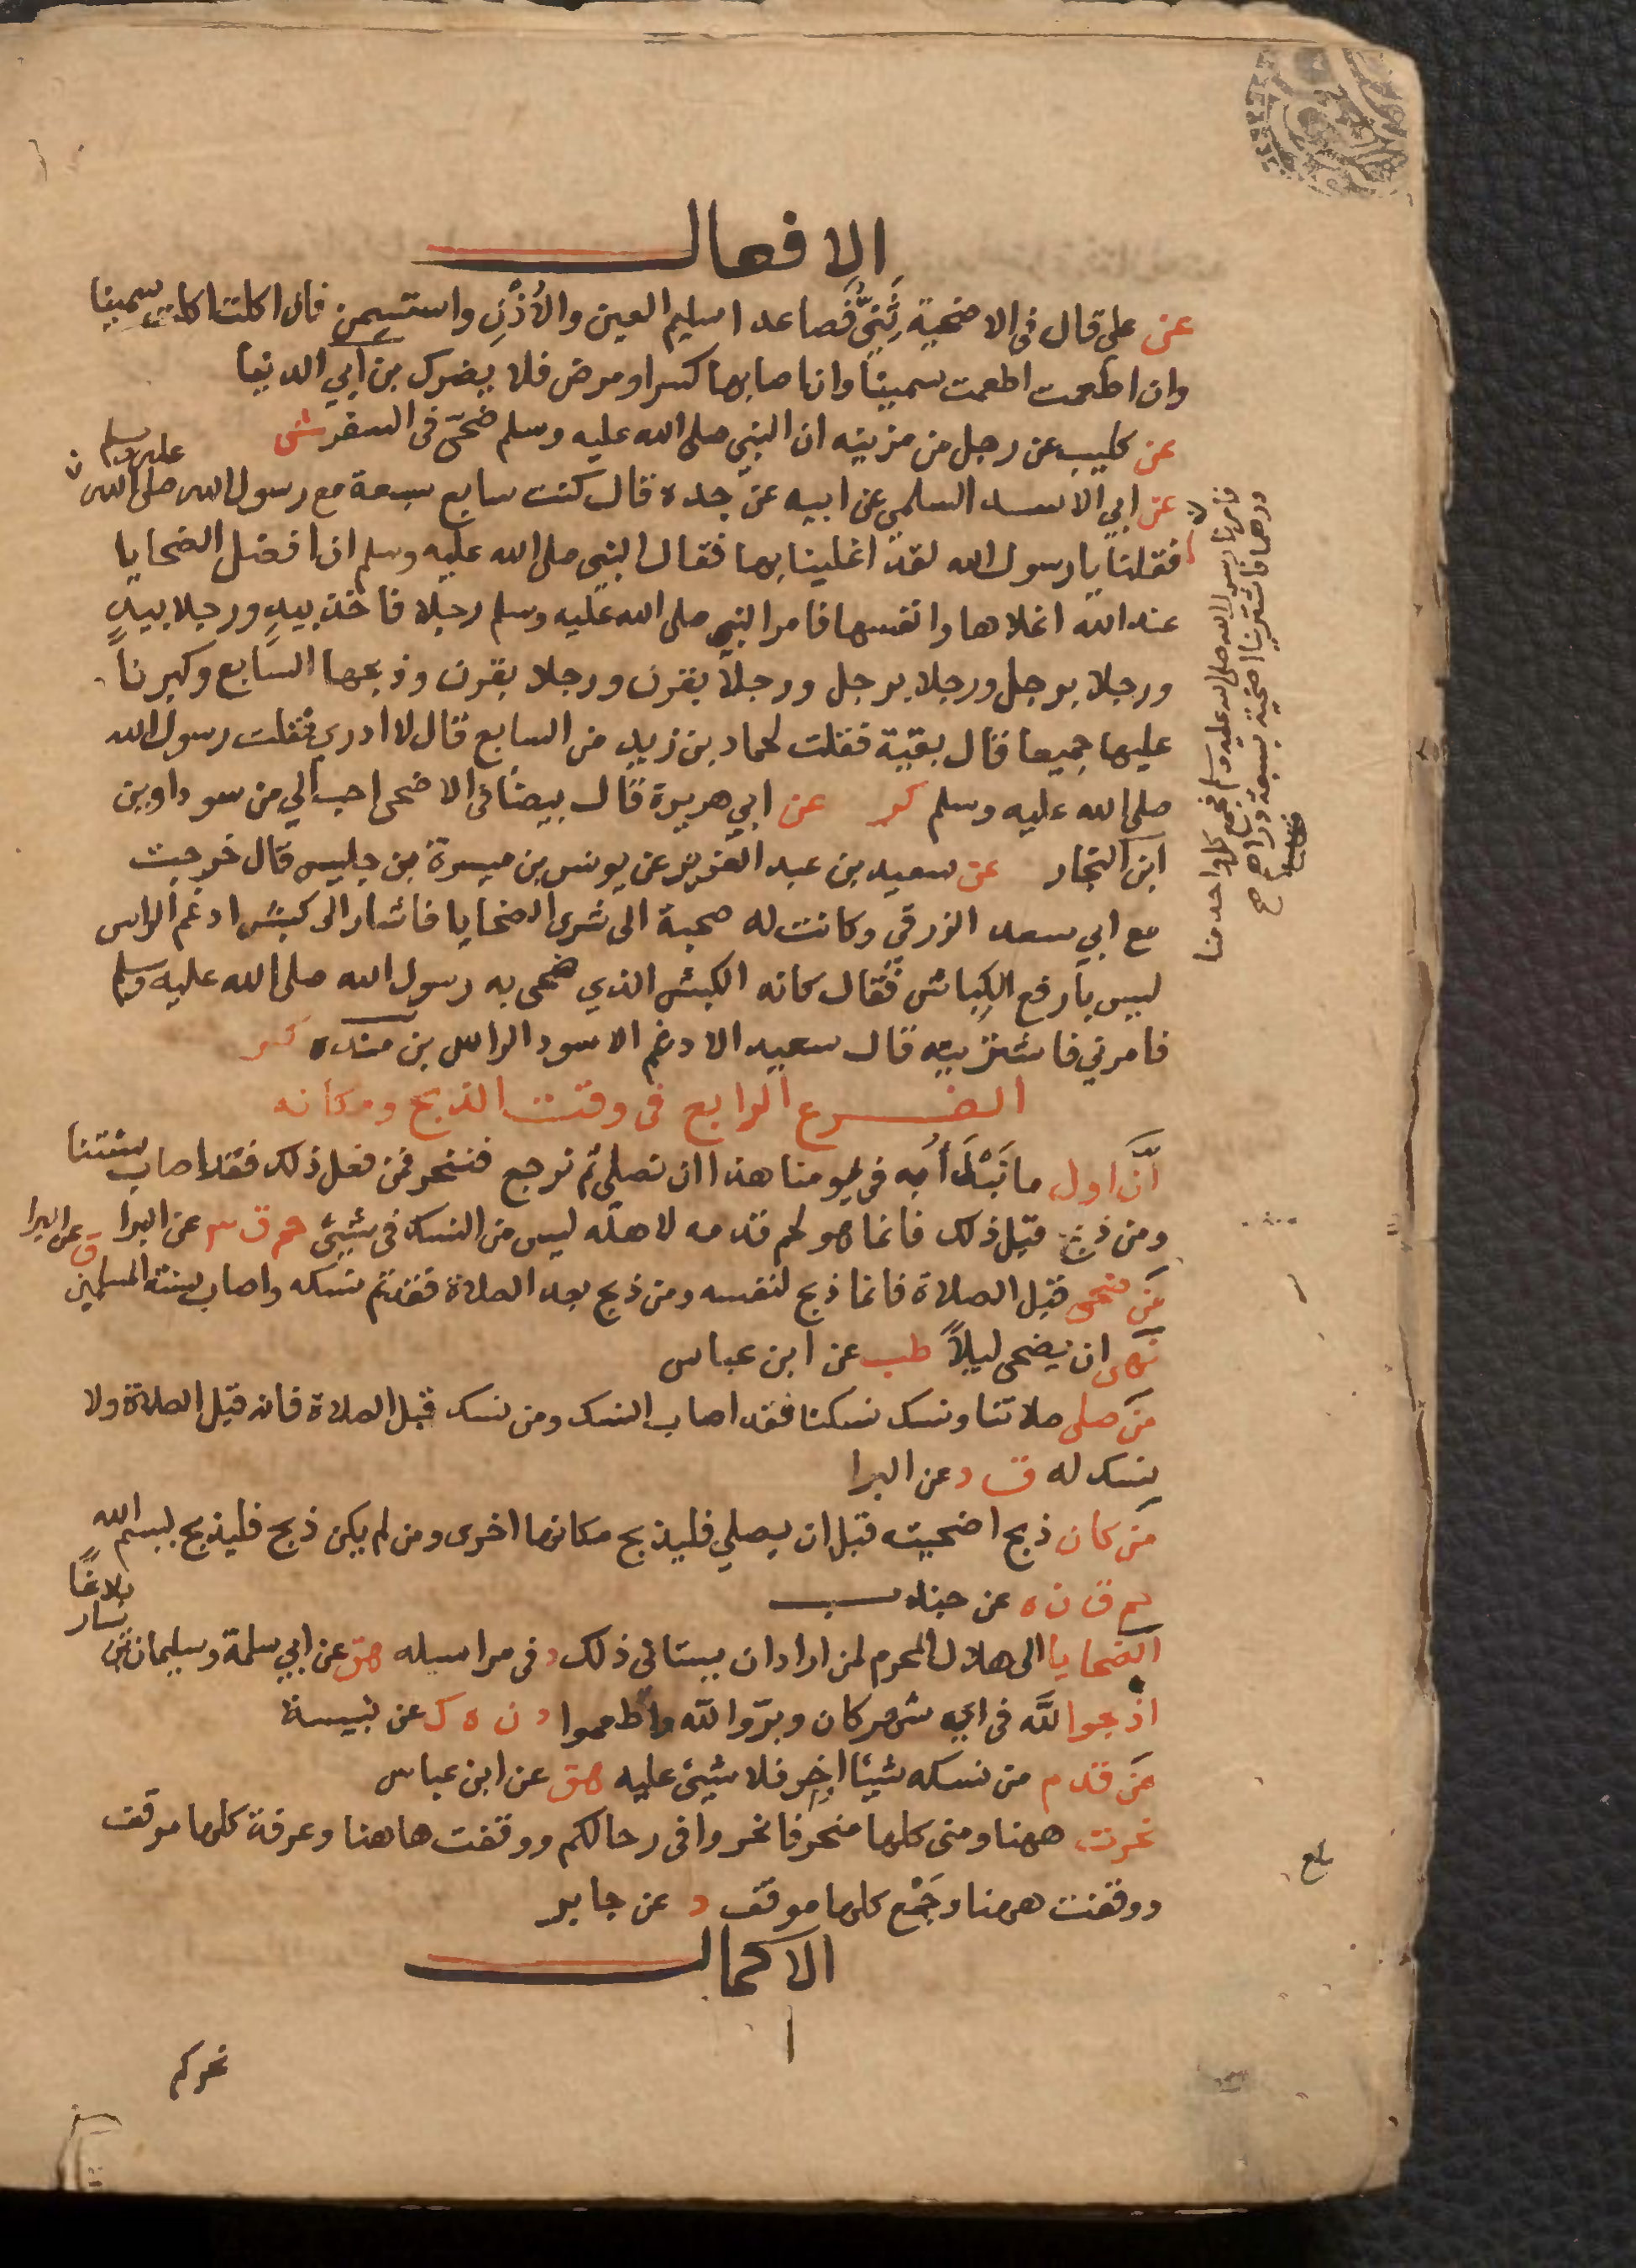 الافعال
عن علي قال في الاضحية ثَنِيٌّ فَصاعدا سليم العين والأُذُنِ واستسمن فان اكلت اكلت سمينا
وان اطعمت اطعمت سمينا وان اصابها كسر او مرض فلا يضرك بن ابي الدنيا
عن كليب عن رجل من مزينه ان النبي صلى الله عليه وسلم ضحّى في السفر ش
عن ابي الاسد السلمي عن ابيه عن جده قال كنت سابع سبعة مع رسول الله صلى الله عليه وسلم
فامرنا رسول الله صلى الله عليه وسلم فجمع كل واحد منا
درهما فاشترينا اضحية بسبعة دراهم
فقلنا يا رسول الله لقد اغلينا بها فقال النبي صلى الله عليه وسلم ان افضل الضحايا
عند الله اغلاها وانفسها فامر النبي صلى الله عليه وسلم رجلا فاخذ بيدٍ ورجلا بيدٍ
ورجلا برجل ورجلا برجل ورجلا بقرن ورجلا بقرن وذبحها السابع وكبرنا
عليها جميعا قال بقية فقلت لحماد بن زيد من السابع قال لا ادري فقلت رسول الله
صلى الله عليه وسلم كر عن ابي هريرة قال بيضا في الاضحى احب الي من سوداوين
ابن النجار عن سعيد بن عبد العزيز عن يونس بن ميسرة بن حليس قال خرجت
مع ابي سعد الزرقي وكانت له صحبة الى شرى الضحايا فاشار الى كبش ادغم الراس
ليس بارفع الكباش فقال كانه الكبش الذي ضحى به رسول الله صلى الله عليه وسلم
فامرني فاشتريته قال سعيد الادغم الاسود الراس بن منده كر
الفرع الرابع في وقت الذبح ومكانه
اَنَّ اول ما نَبْدَأُ به في يومنا هذا ان نصلي ثم نرجع فننحر فمن فعل ذلك فقد اصاب سنتنا
ومن ذبح قبل ذلك فانما هو لحم قدمه لاهله ليس من النسك في شيئ حم ق ٣ عن البرا
مَن ضحى قبل الصلاة فانما ذبح لنفسه ومن ذبح بعد الصلاة فقد تم نسكه واصاب سنة المسلمين ق عن البرا
نهى ان يضحى ليلاً طب عن ابن عباس
مَن صلى صلاتنا ونسك نسكنا فقد اصاب النسك ومن نسك قبل الصلاة فانه قبل الصلاة ولا
نسك له ق د عن البرا
مَن كان ذبح اضحيته قبل ان يصلي فليذبح مكانها اخرى ومن لم يكن ذبح فليذبح بسم الله
حم ق ن ه عن جندب
الضحايا الى هلال المحرم لمن اراد ان يستاني ذلك د في مراسيله هق عن ابي سلمة وسليمان بن يسار بلاغًا
اذبحوا للَّه في اي شهر كان وبرّوا للّه واطعموا د ن ه ك عن نبيسة
مَن قدم من نسكه شيئا او اخر فلا شيئ عليه هق عن ابن عباس
نحرت ههنا ومنى كلها منحر فانحروا في رحالكم ووقفت هاهنا وعرفة كلها موقف
ووقفت ههنا وجَمْع كلها موقف د عن جابر
بلغ
الاكمال
نحركم